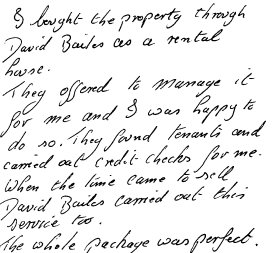 I bought the property through
David Bailes as a rental
house.
They offered to manage it
for me and I was happy to
do so. They found tenants and
carried out credit checks for me.
When the time came to sell
David Bailes carried out this
service too.
The whole package was perfect.